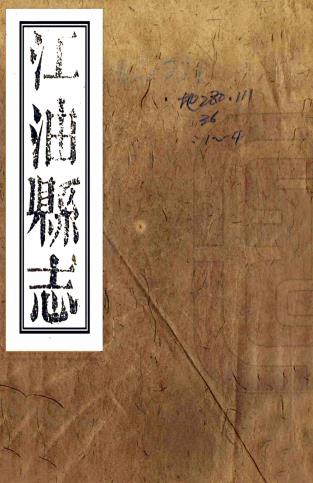 江油縣志
地280.111
36
:1~4